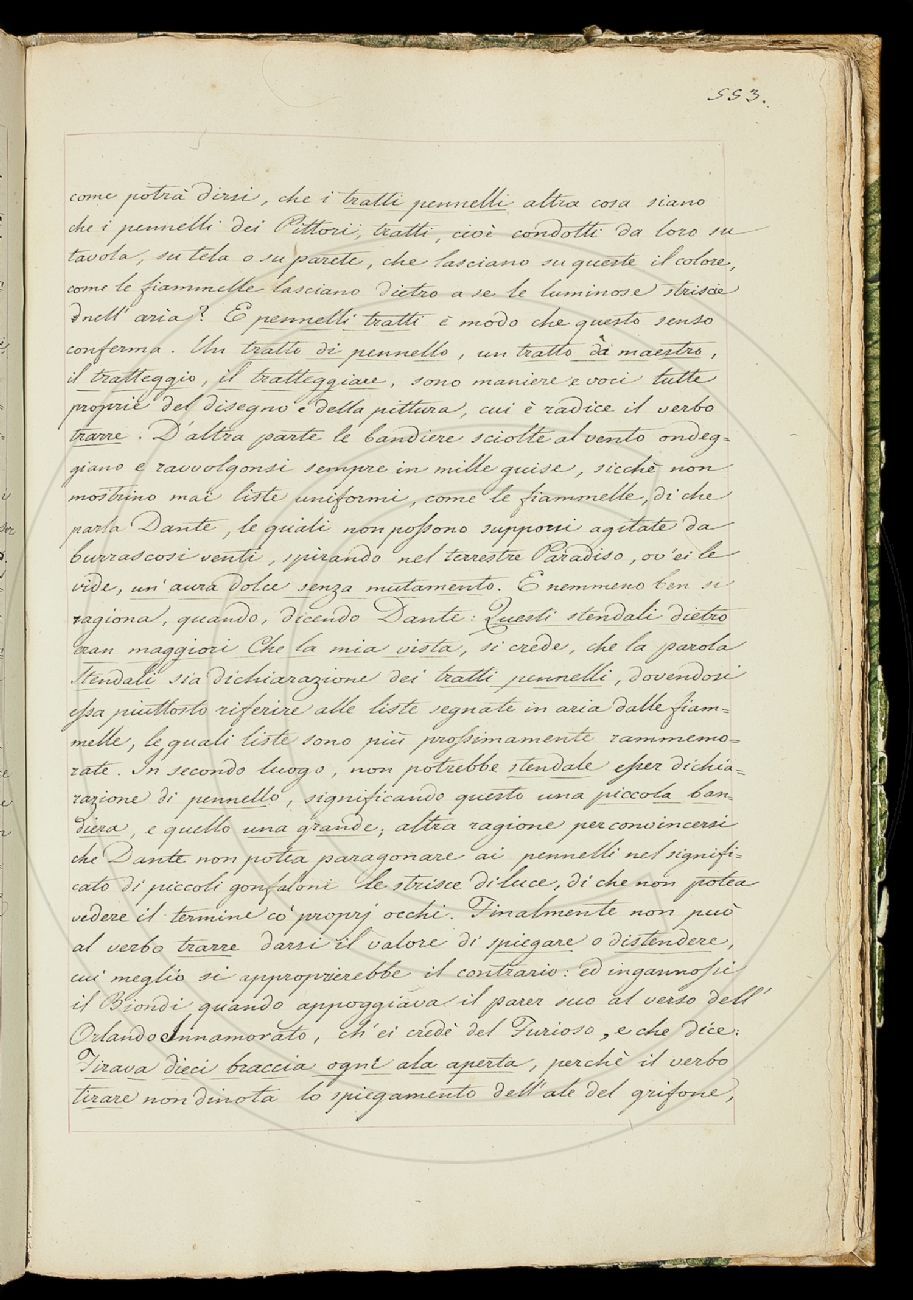 553.
come potrà dirsi, che i tratti pennelli altra cosa siano
che i pennelli dei Pittori, tratti, cioè condotti da loro su
tavola, su tela o su parete, che lasciano su queste il colore,
come le fiammelle lasciano dietro a se le luminose strisce
nell'aria? E pennelli tratti è modo che questo senso
conferma. Un tratto di pennello, un tratto da maestro,
il tratteggio, il tratteggiare, sono maniere e voci tutte
proprie del disegno e della pittura, cui è radice il verbo
trarre. D'altra parte le bandiere sciolte al vento ondeg-
giano e ravvolgonsi sempre in mille guise, sicchè non
mostrino mai liste uniformi, come le fiammelle, di che
parla Dante, le quali non possono supporsi agitate da
burrascosi venti, spirando nel terrestre Paradiso, ov'ei le
vide, un'aura dolce senza mutamento. E nemmeno ben si
ragiona, quando, dicendo Dante: Questi stendali dietro
eran maggiori Che la mia vista, si crede, che la parola
stendali sia dichiarazione dei tratti pennelli, dovendosi
essa piuttosto riferire alle liste segnate in aria dalle fiam=
melle, le quali liste sono più prossimamente rammemo=
rate. In secondo luogo, non potrebbe stendale esser dichia=
razione di pennello, significando questo una piccola ban=
diera, e quello una grande; altra ragione per convincersi
che Dante non potea paragonare ai pennelli nel signifi=
cato di piccoli gonfaloni le strisce di luce, di che non potea
vedere il termine co' proprj occhi. Finalmente non può
al verbo trarre darsi il valore di spiegare o distendere,
cui meglio si approprierebbe il contrario: ed ingannossi
il Biondi quando appoggiava il parer suo al verso dell'
Orlando Innamorato, ch'ei credè del Furioso, e che dice:
Tirava dieci braccia ogni ala aperta, perchè il verbo
tirare non dinota lo spiegamento dell'ale del grifone,